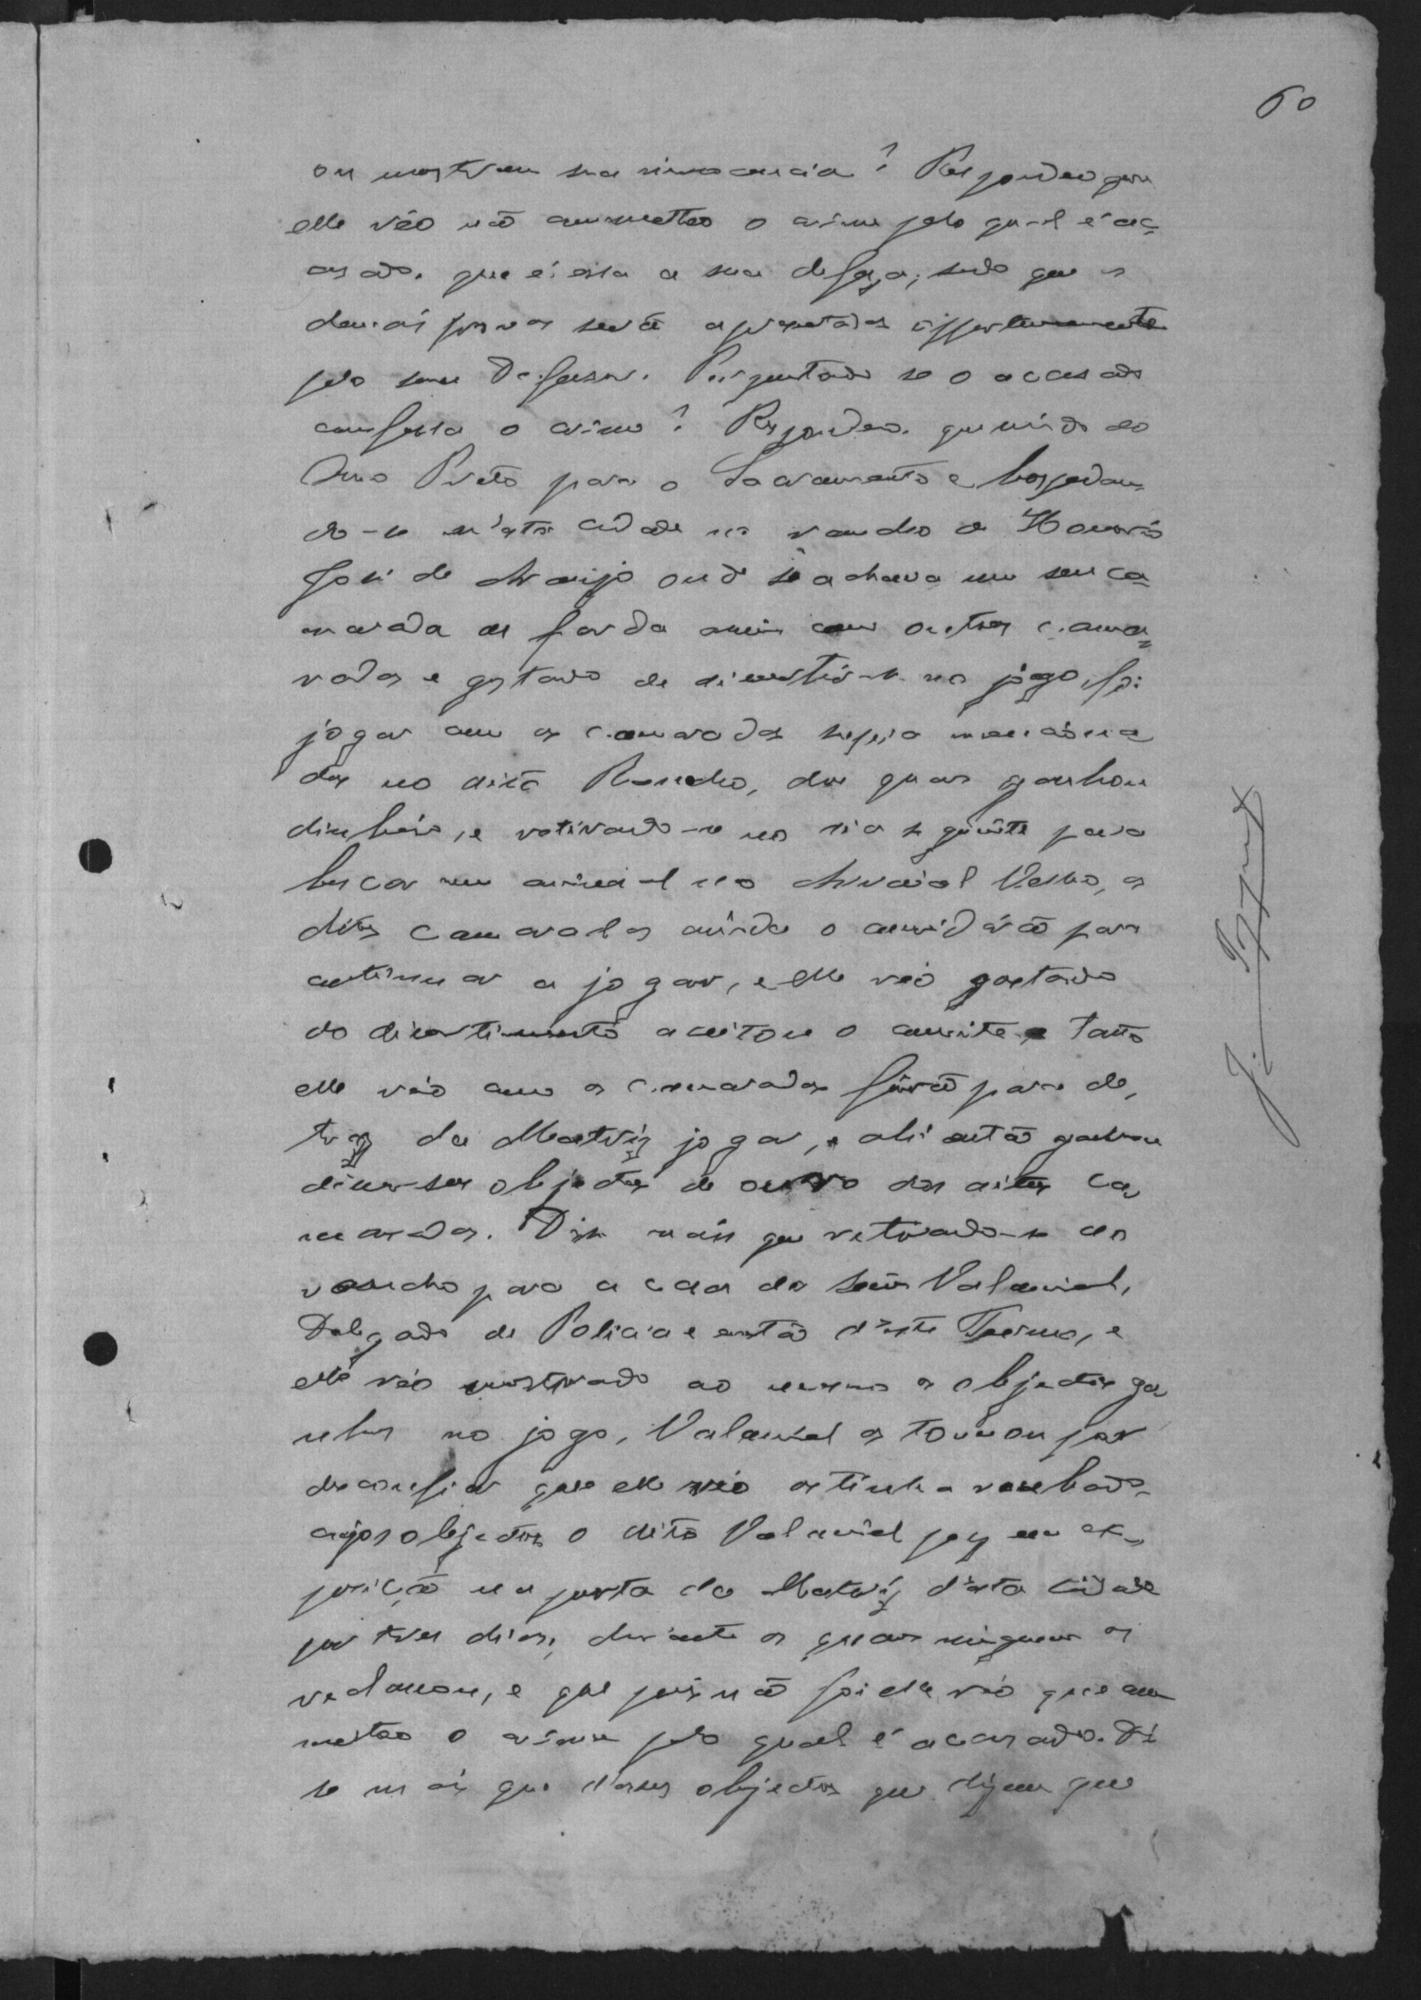 60
ou mostrem sua innocencia? Respondeo que
elle réo não commetteo o crime pelo qual é ac-
cusado, que é essa a sua defeza, sendo que as
demais provas serão apresentadas opportunamente
pelo seu Defensor. Perguntado se o accusado
confessa o crime? Respondeo, que vindo do
Ouro Preto para o Sacramento e hospedan-
do-se n'esta cidade no rancho de Honorio
José de Araujo onde se achava um seu ca-
marada de farda assim com outros cama-
radas e gostando de divertir-se no jogo, foi
jogar com os camaradas supra menciona
dos no dito Rancho, dos quaes ganhou
dinheiro, e retirando-se no dia seguinte para
buscar um animal no Arraial Velho, os
ditos camaradas ainda o convidárão para
continuar a jogar, e elle réo gostando
do divertimento aceitou o convite e tanto
elle réo como os camaradas fôrão para de-
traz da Matriz jogar, e ahi então ganhou
diversos objectos de ouro dos ditos ca-
maradas. Disse mais que retirando-se do
rancho para a casa do Senr Valamiel,
Delegado de Policia e então d'este Termo, e
elle réo mostrando ao mesmo os objectos ga
nhos no jogo, Valamiel os tomou por
desconfiar que elle réo os tinha roubado,
cujos objectos o dito Valamiel poz em ex-
posição na porta da Matriz d'esta cidade
por tres dias, durante os quaes ninguem os
reclamou, e que pois não foi elle réo que com
metteo o crime pelo qual é accusado. Dis
se mais que d'esses objectos que dizem que